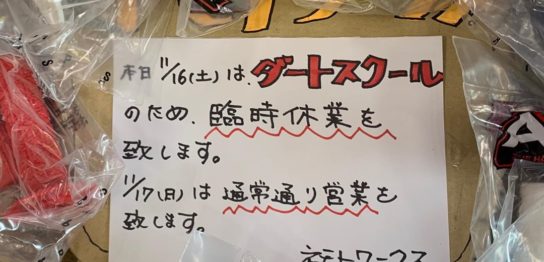 本日 11/16(土)は、ダートスクール
のため、臨時休業を
致します。
11/17(日)は通常通り営業を
致します。
ネモトワークス